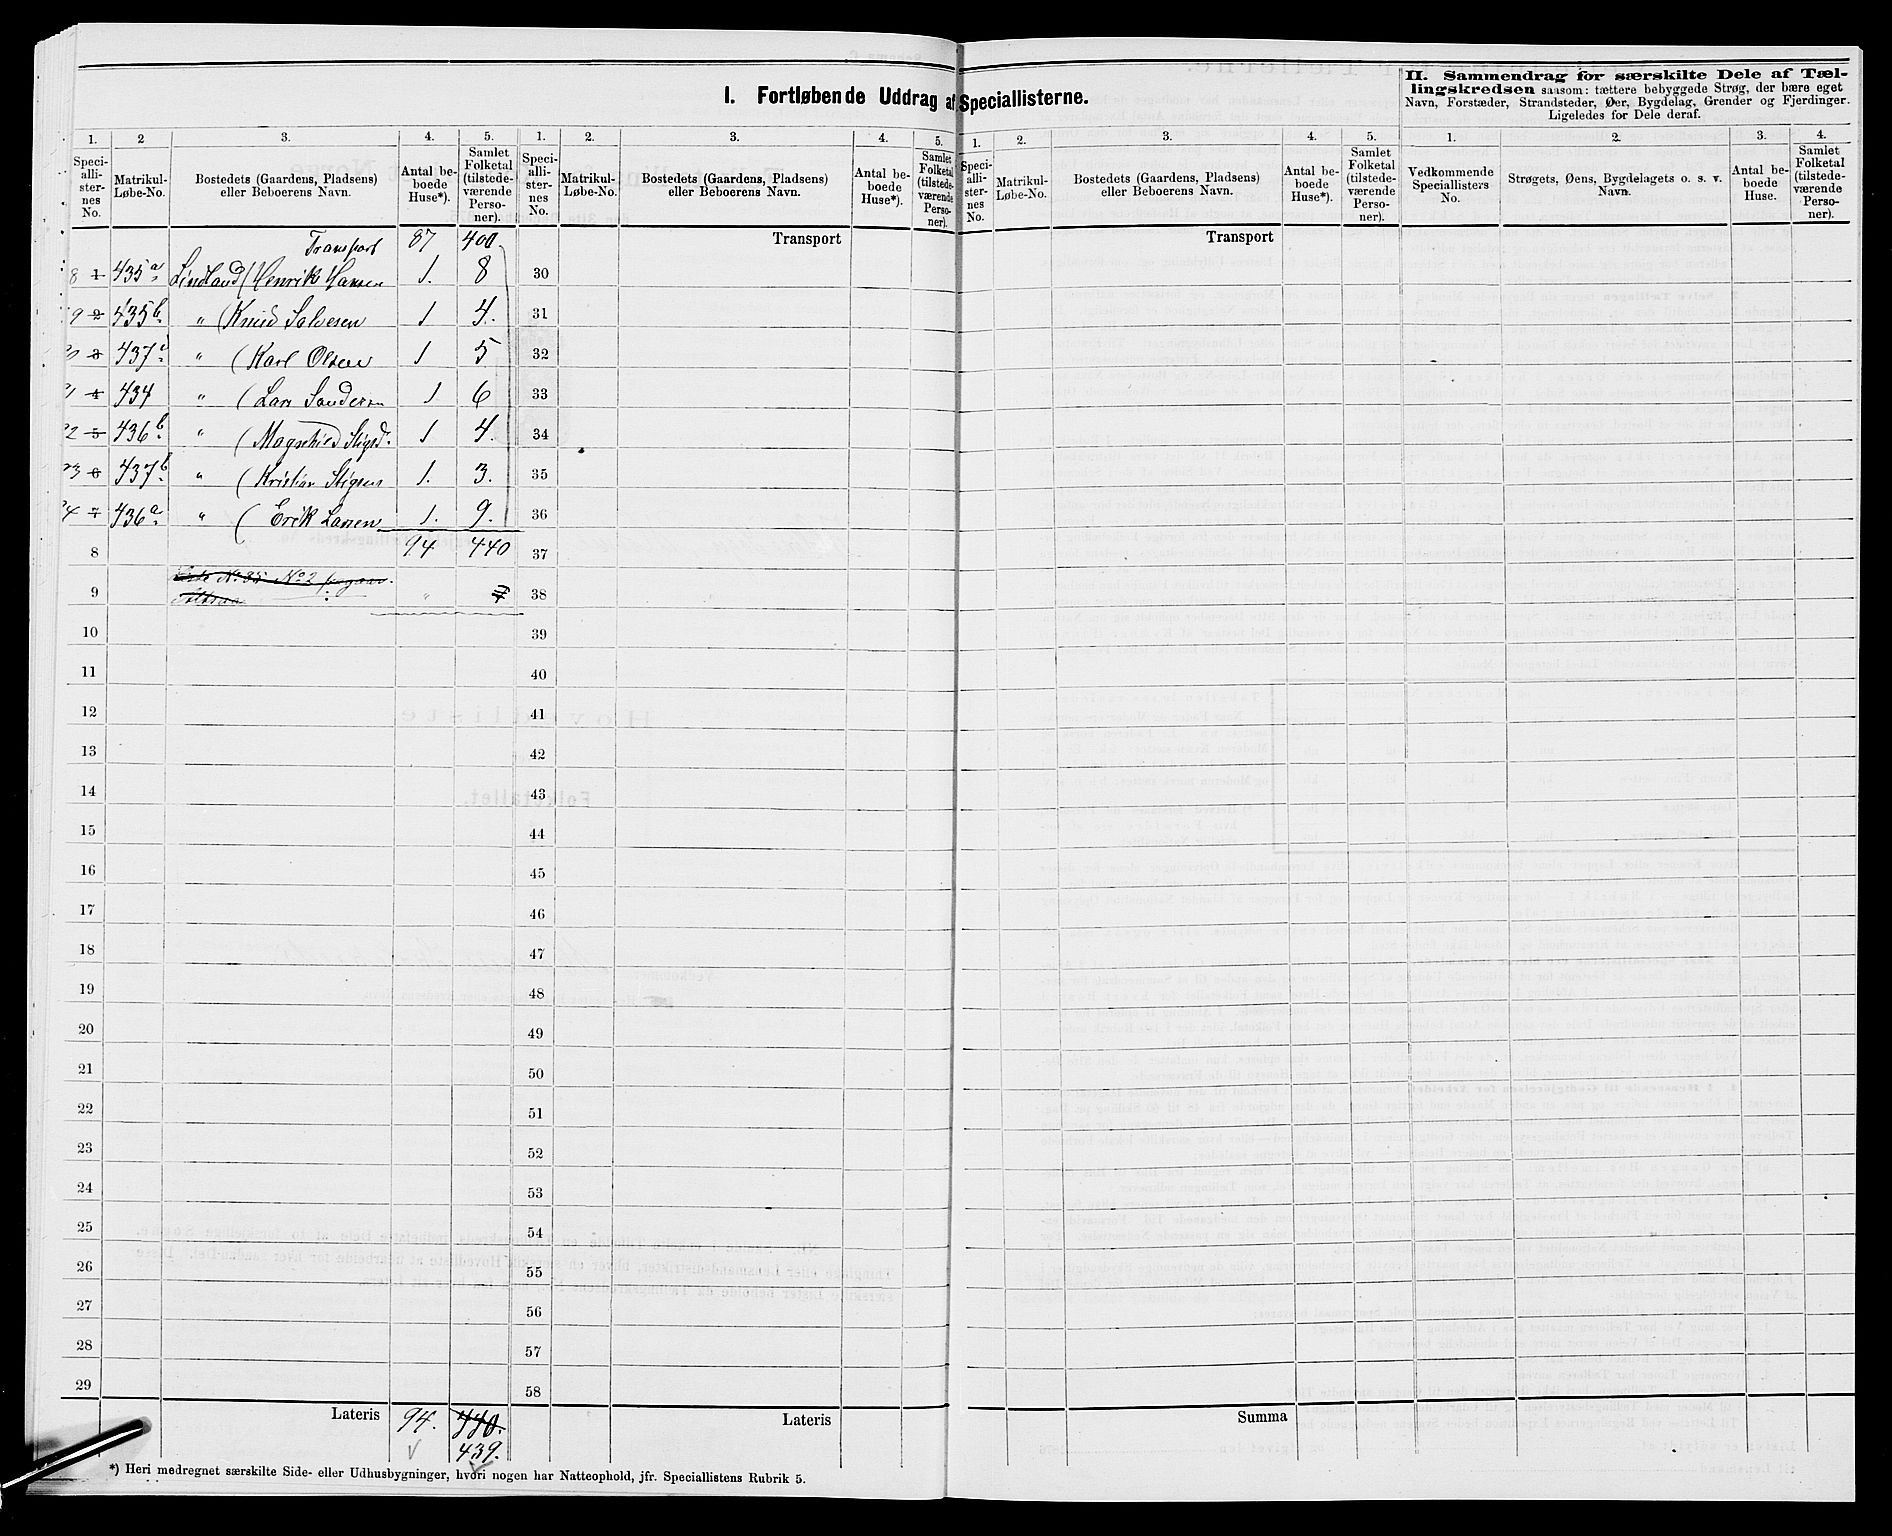 I. Fortløbende Uddrag af Speciallisterne.
II. Sammendrag for særskilte Dele af Tæl-
lingskredsen saasom: tættere bebyggede Strøg, der bære eget
Navn, Forstæder, Strandsteder, Øer, Bygdelag, Grender og Fjerdinger.
Ligeledes for Dele deraf.
1. 2 3. 4. 5. 1. 2. 3. 4. 5. 1. 2. 3. 4. 5. 1. 2. 3. 4.
Speci-
alli-
ster-
nes
No.
Matrikul-
Løbe-No.
Bostedets (Gaardens, Pladsens)
eller Beboerens Navn.
Antal be-
boede
Huse*).
Samlet
Folketal
(tilstede-
værende
Perso-
ner).
Speci-
alli-
ster-
nes
No.
Matrikul-
Løbe-No.
Bostedets (Gaardens, Pladsens)
eller Beboerens Navn.
Antal be-
boede
Huse*).
Samlet
Folketal
(tilstede-
værende
Perso-
ner).
Speci-
alli-
ster-
nes
No.
Matrikul-
Løbe-No.
Bostedets (Gaardens, Pladsens)
eller Beboerens Navn.
Antal be-
boede
Huse*).
Samlet
Folketal
(tilstede-
værende
Perso-
ner).
Vedkommende
Speciallisters
No.
Strøgets, Øens, Bygdelagets o. s. v.
Navn.
Antal be-
boede
Huse.
Samlet
Folketal
(tilstede-
værende
Perso-
ner).
Transport 87 400 Transport Transport
8 1 435a Lindland (Henrik Hansen 1. 8 30
9 2 435b. " (Knud Salvesen 1 4. 31
3 437a " (Karl Olsen 1 5 32
4 434 " (Lars Sandersen 1 6 33
22 5 436b. " (Magnhild Stigsd. 1 4. 34
23 6 437b. " (Kristian Stigsen 1. 3. 35
24 7 436a " (Erik Larsen 1. 9. 36
8 94 440 37
9 No. 35 No 2 " 38
10 39
11 40
12 41
13 42
14 43
15 44
16 45
17 46
18 47
19 48
20 49
21 50
22 51
23 52
24 53
25 54
26 55
27 56
28 57
29 58
Lateris 94. 440. Lateris Summa
439.
*) Heri medregnet særskilte Side- eller Udhusbygninger, hvori nogen har Natteophold, jfr. Speciallistens Rubrik 5.